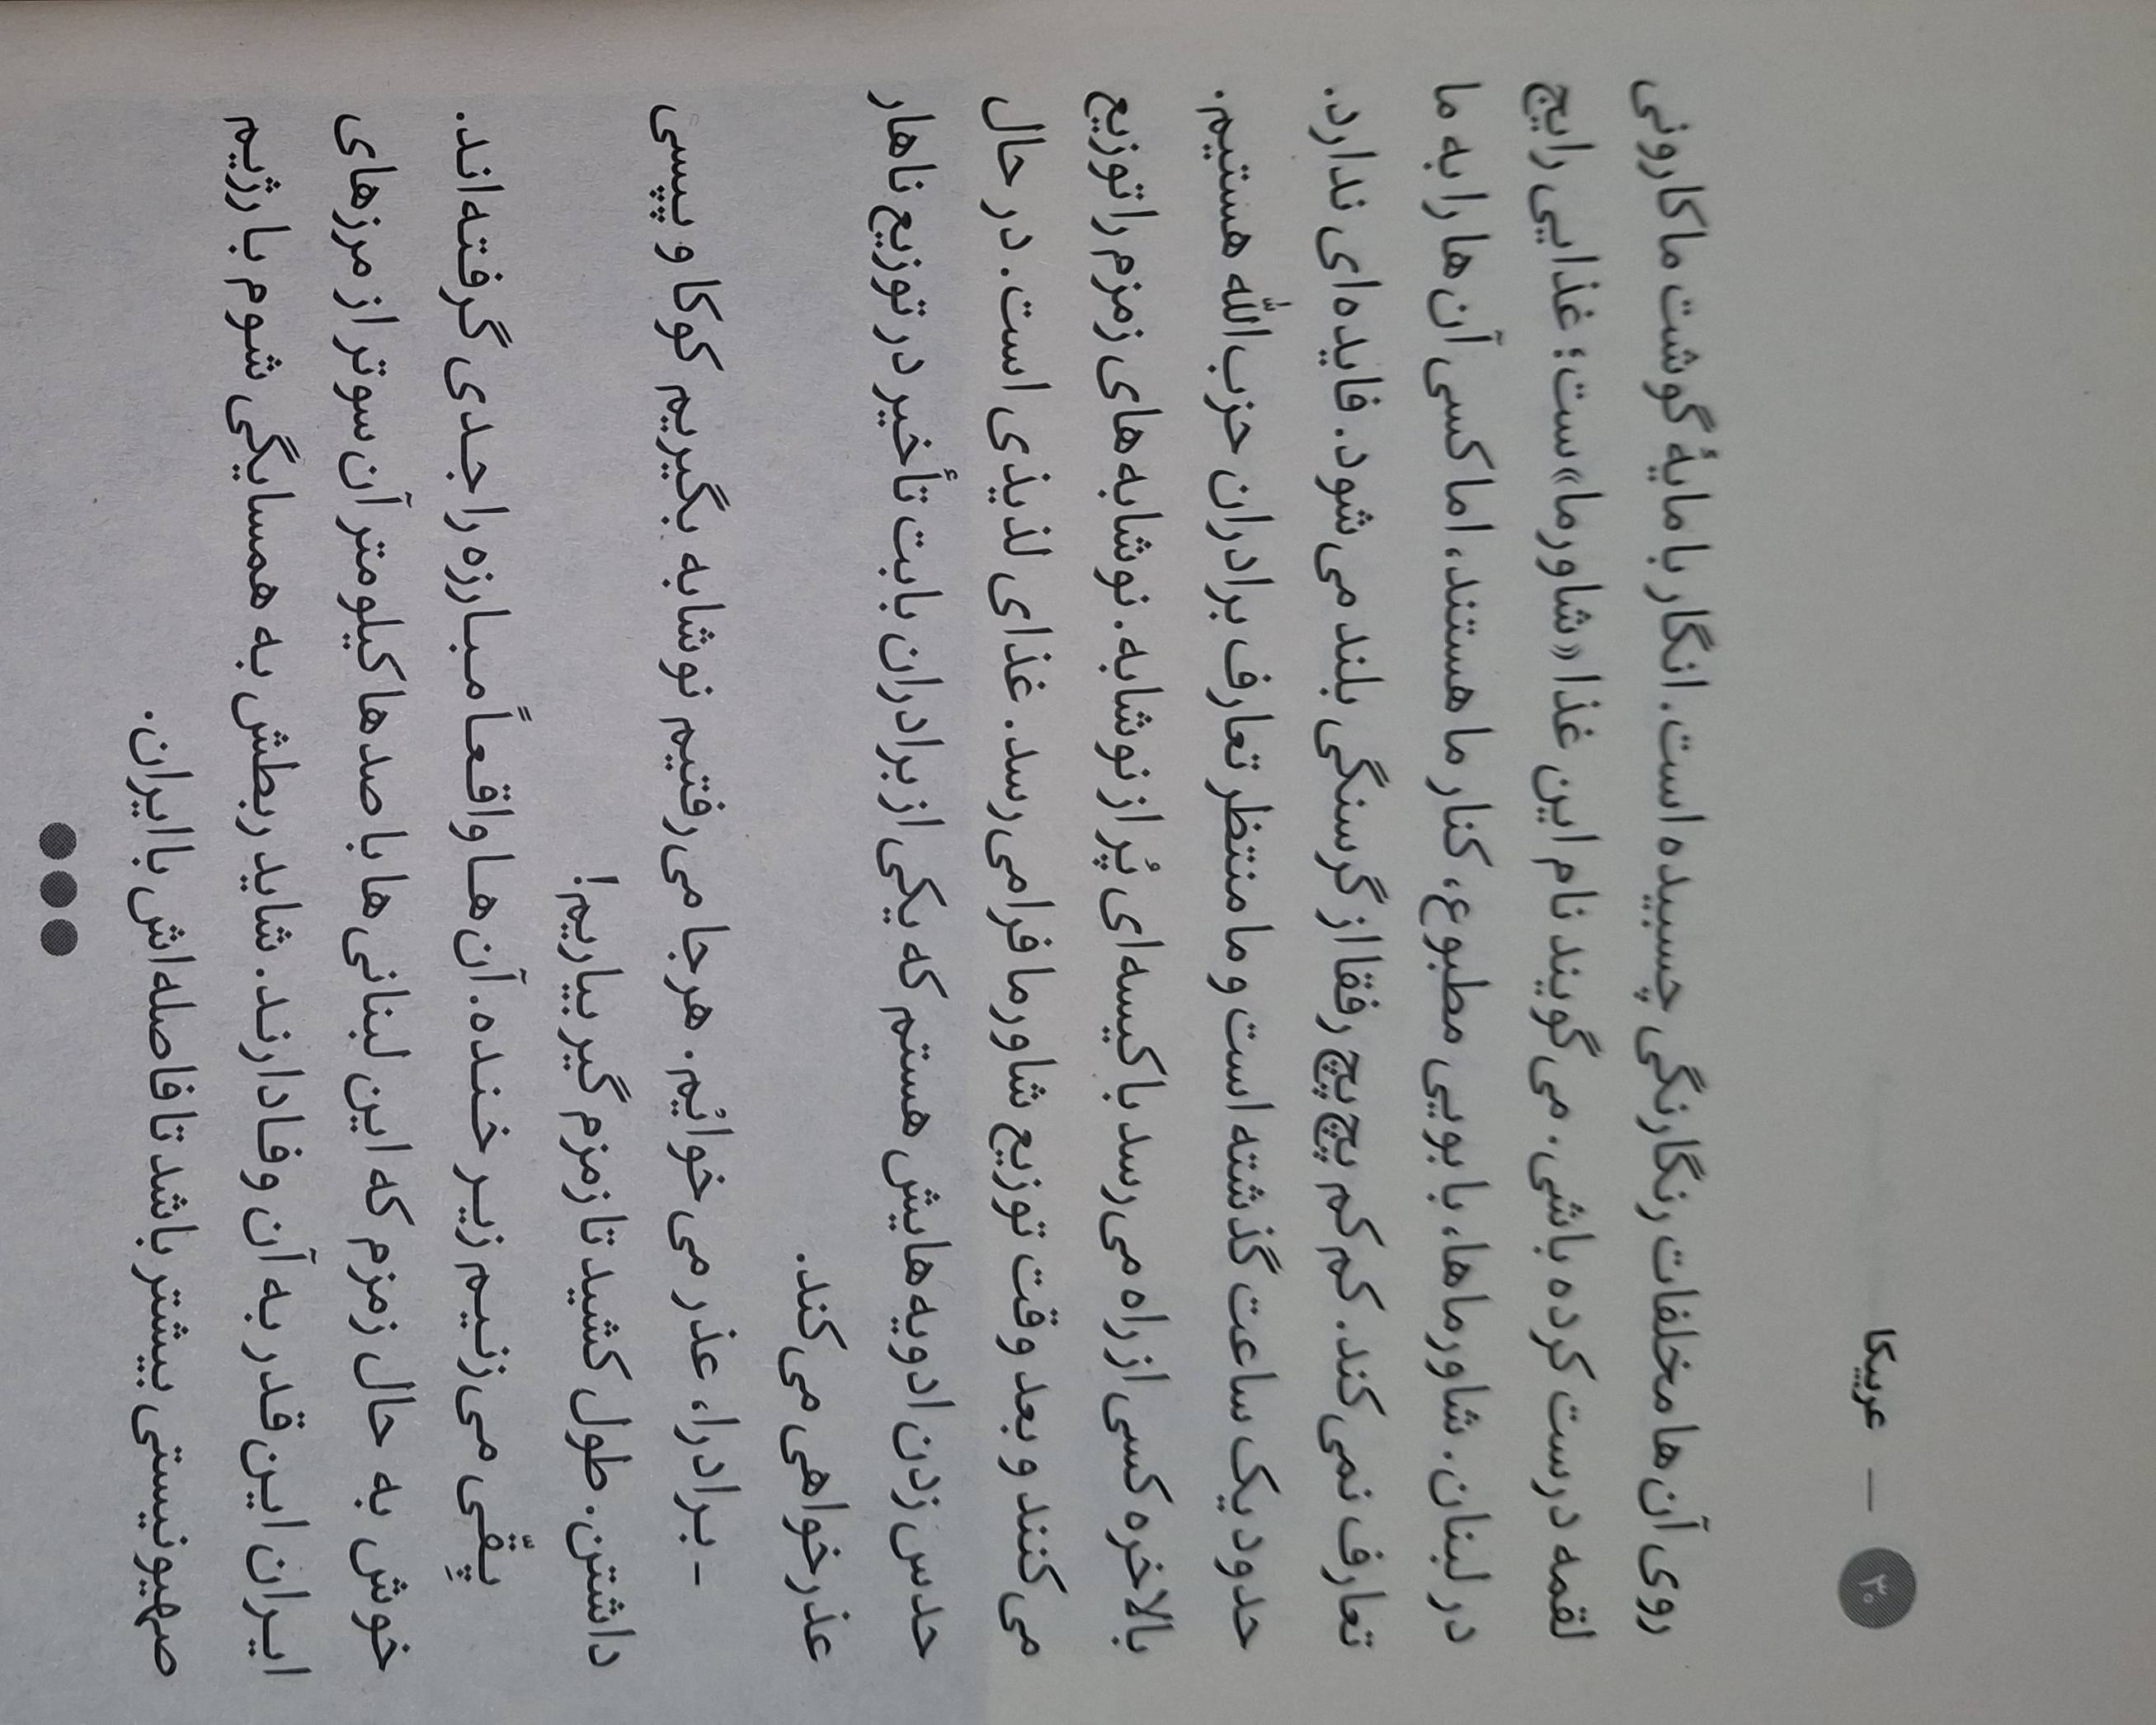 ۳۰ — عربیکا
روی آن‌ها مخلفات رنگارنگی چسبیده است. انگار با مایۀ گوشت ماکارونی
لقمه درست کرده باشی. می‌گویند نام این غذا «شاورما»ست؛ غذایی رایج
در لبنان. شاورماها، با بویی مطبوع، کنار ما هستند، اما کسی آن‌ها را به ما
تعارف نمی‌کند. کم‌کم پچ‌پچ رفقا از گرسنگی بلند می‌شود. فایده‌ای ندارد.
حدود یک ساعت گذشته است و ما منتظر تعارف برادران حزب‌الله هستیم.
بالاخره کسی از راه می‌رسد با کیسه‌ای پُر از نوشابه. نوشابه‌های زمزم را توزیع
می‌کنند و بعد وقت توزیع شاورما فرامی‌رسد. غذای لذیذی است. در حال
حدس زدن ادویه‌هایش هستم که یکی از برادران بابت تأخیر در توزیع ناهار
عذرخواهی می‌کند.
- برادرا، عذر می‌خوایْم. هرجا می‌رفتیم نوشابه بگیریم کوکا و پپسی
داشتن. طول کشید تا زمزم گیر بیاریم!
پِقّی می‌زنیم زیر خنده. آن‌ها واقعاً مبارزه را جدی گرفته‌اند.
خوش به حال زمزم که این لبنانی‌ها با صدها کیلومتر آن‌سوتر از مرزهای
ایران این‌قدر به آن وفادارند. شاید ربطش به همسایگی شوم با رژیم
صهیونیستی بیشتر باشد تا فاصله‌اش با ایران.